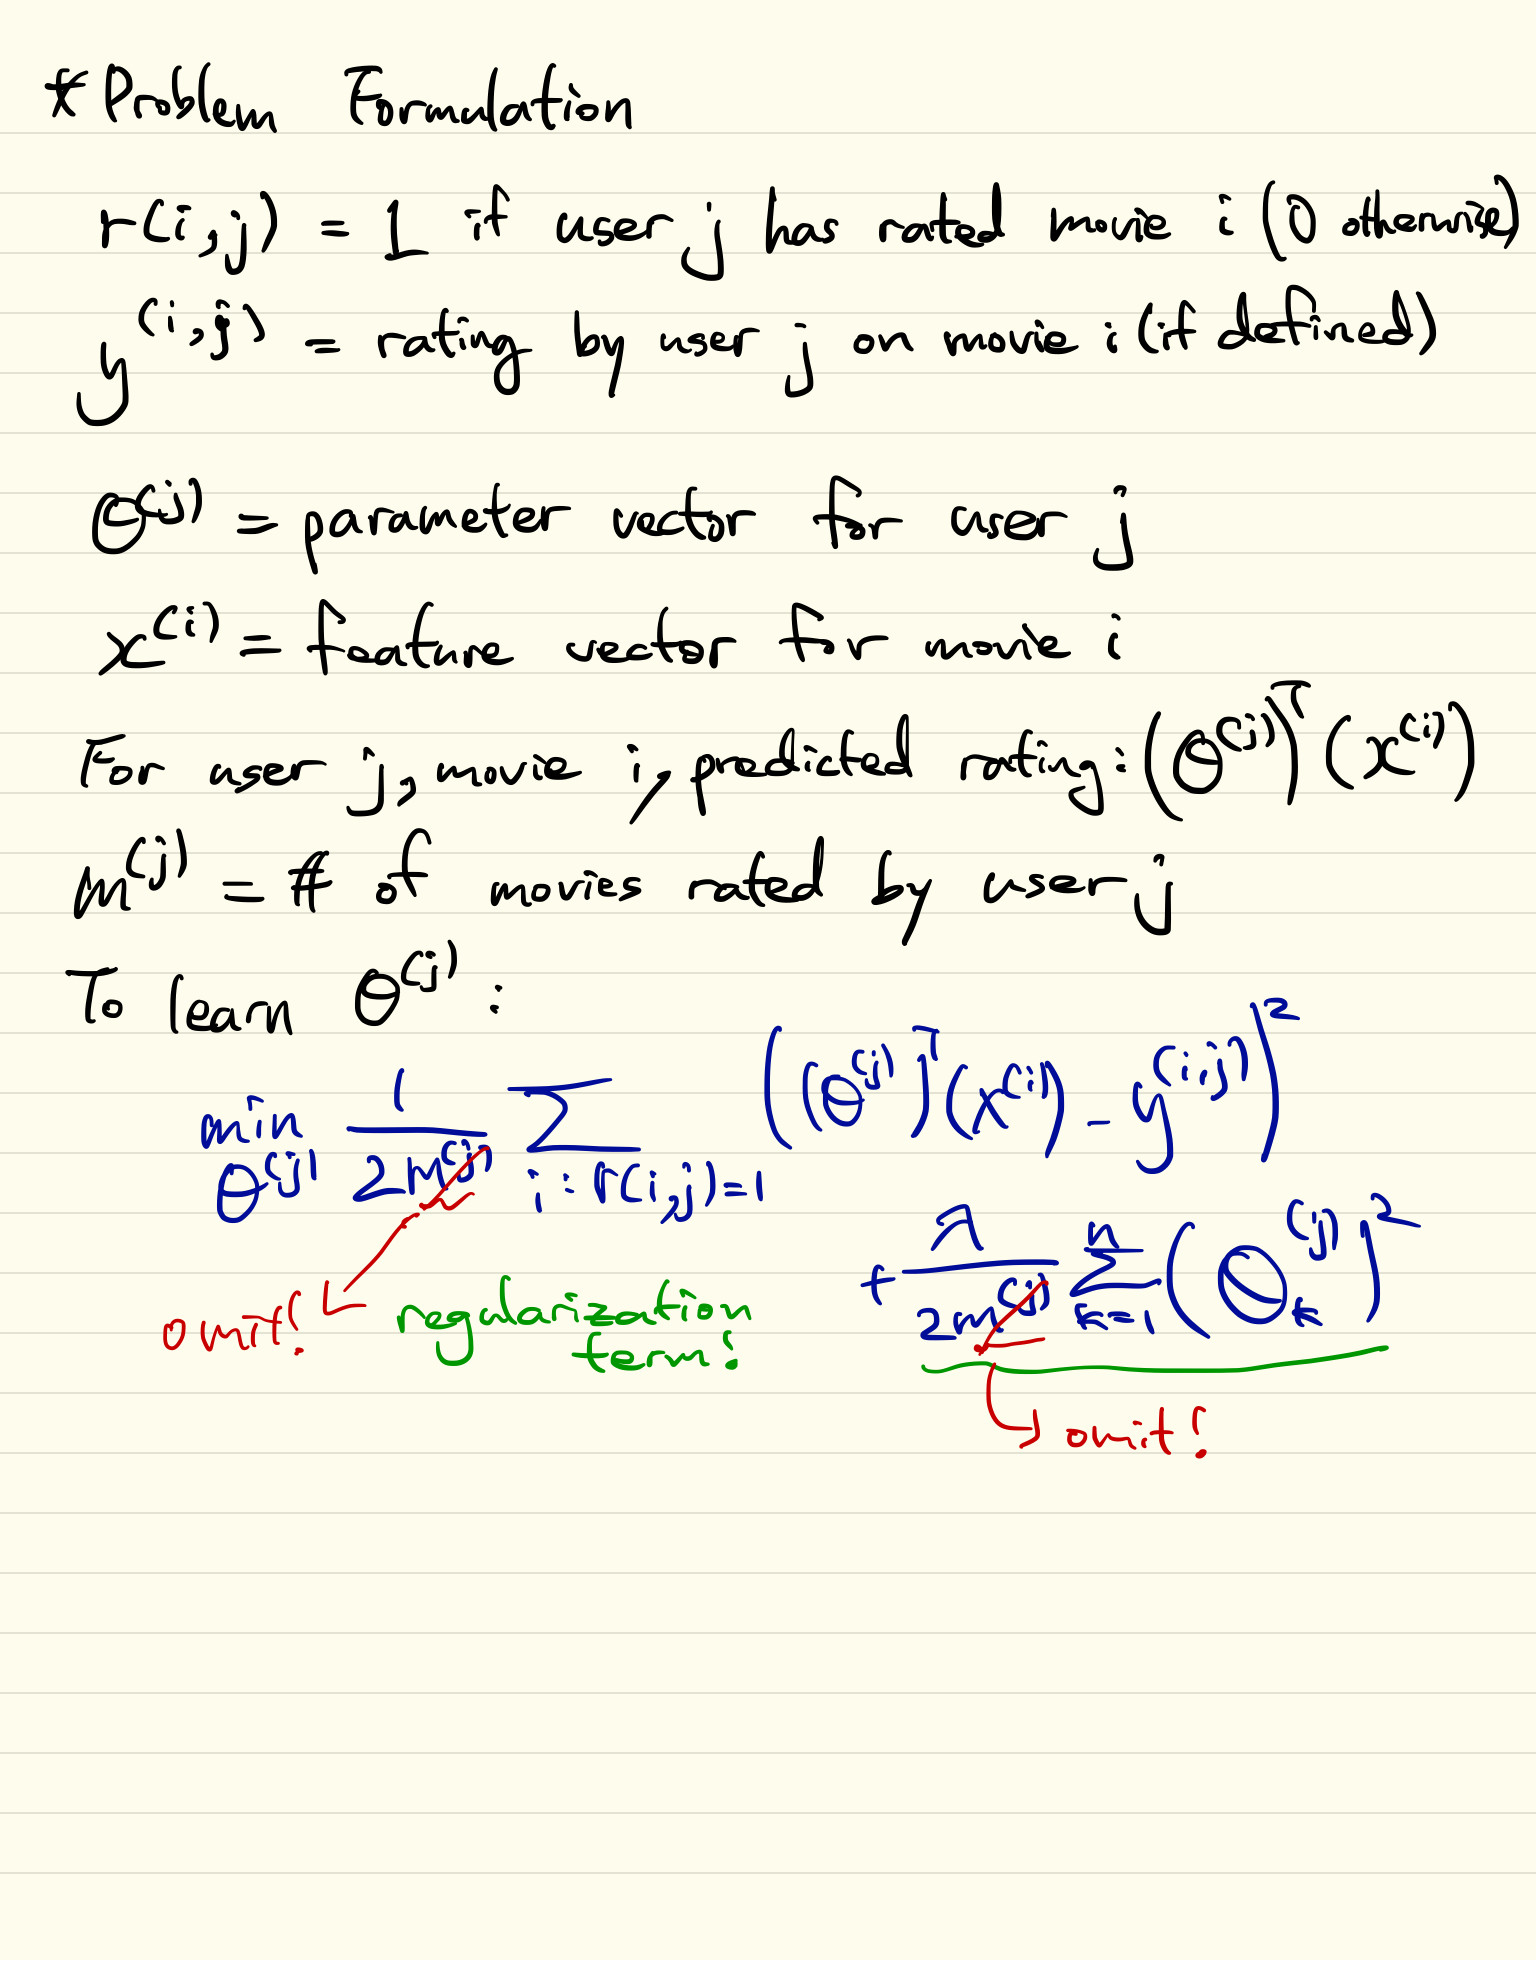 * Problem Formulation
r(i,j) = 1 if user j has rated movie i (0 otherwise)
y^(i,j) = rating by user j on movie i (if defined)
θ^(j) = parameter vector for user j
x^(i) = feature vector for movie i
For user j, movie i, predicted rating: (θ^(j))^T (x^(i))
m^(j) = # of movies rated by user j
To learn θ^(j) :
min θ^(j) 1/2m^(j) Σ i:r(i,j)=1 ((θ^(j))^T (x^(i)) - y^(i,j))^2
+ λ/2m^(j) Σ k=1 n (θ_k^(j))^2
omit!
regularization
term!
omit!